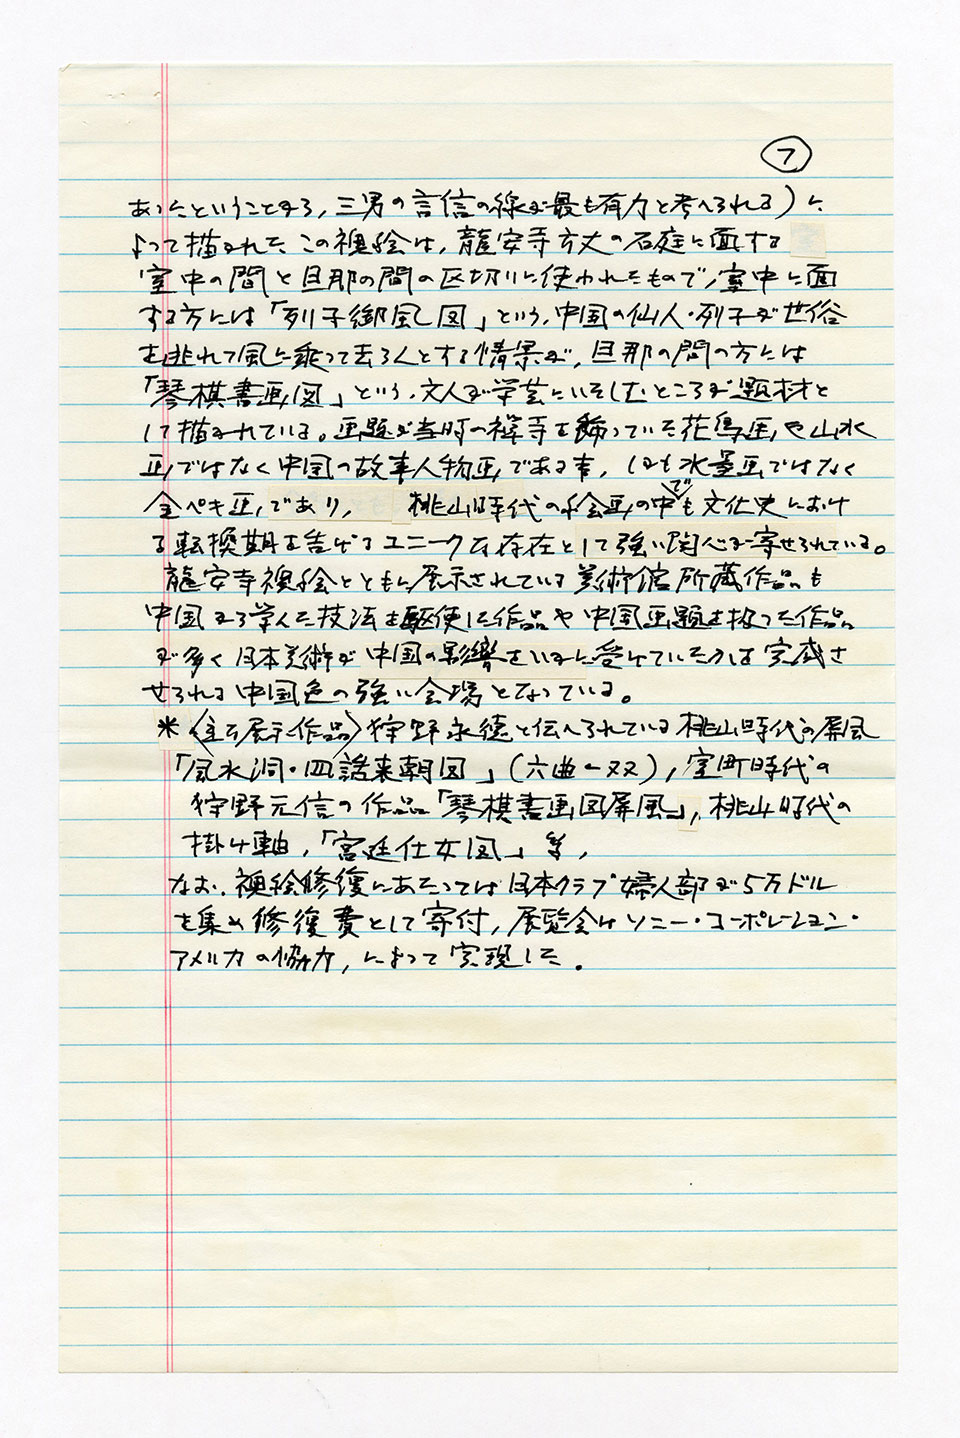 7
あったということから,三男の言信の線が最も有力と考へられる)に
よって描かれた。この襖絵は,龍安寺方丈の石庭に面する
室中の間と旦那の間の区切りに使われたもので,室中に面
する方には「列子御風図」という,中国の仙人・列子が世俗
を逃れて風に乗って去ろうとする情景が,旦那の間の方には
「琴棋書画図」という,文人が学芸にいそしむところが題材と
して描かれている。画題が当時の禅寺を飾っていた花鳥画や山水
画ではなく中国の故事人物画である事,しかも水墨画ではなく
金ペキ画であり,桃山時代の絵画の中でも文化史におけ
る転換期を告げるユニークな存在として強い関心が寄せられている。
龍安寺襖絵とともに展示されている美術館所蔵作品も
中国から学んだ技法を駆使した作品や中国画題を扱った作品
が多く日本美術が中国の影響をいかに受けていたかは完感さ
せられる中国色の強い会場となっている。
*〈主な展示作品〉狩野永徳と伝へられている桃山時代の屏風
「風水洞・四譜来朝図」(六曲一双),室町時代の
狩野元信の作品「琴棋書画図屏風」,桃山時代の
掛け軸,「宮廷仕女図」等,
なお,襖絵修復にあたっては日本クラブ婦人部が5万ドル
を集め修復費として寄付,展覧会はソニー・コーポレーション・
アメリカの協力,によって実現した。